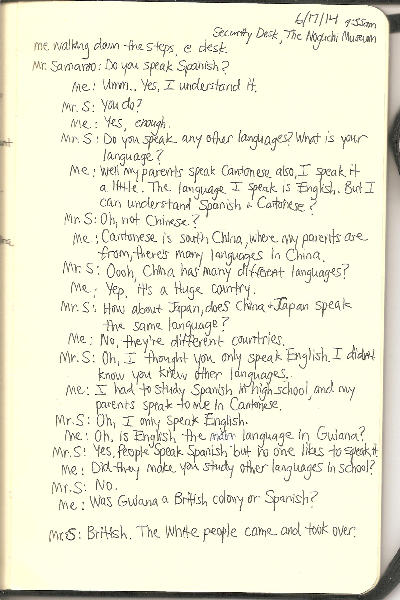 6/17/14 9:55am
Security Desk, The Noguchi Museum
me walking down the steps, @ desk.
Mr. Samaroo: Do you speak Spanish?
Me: Umm.. Yes, I understand it.
Mr. S: You do?
Me: Yes, enough.
Mr. S: Do you speak any other languages? What is your
language?
Me: Well my parents speak Cantonese also, I speak it
a little. The language I speak is English. But I
can understand Spanish & Cantonese?
Mr. S: Oh, not Chinese?
Me: Cantonese is south China, where my parents are
from, there's many languages in China.
Mr. S: Oooh, China has many different languages?
Me: Yep, it's a Huge country.
Mr. S: How about Japan, does China + Japan speak
the same language?
Me: No, they're different countries.
Mr. S: Oh, I thought you only speak English. I didn't
know you knew other languages.
Me: I had to study Spanish in high school, and my
parents speak to me in Cantonese.
Mr. S: Oh, I only speak English.
Me: Oh, is English the main language in Guiana?
Mr. S: Yes, People speak Spanish but no one likes to speak it
Me: Did they make you study other languages in school?
Mr. S: No.
Me: Was Guiana a British colony or Spanish?
Mr. S: British. The White people came and took over.